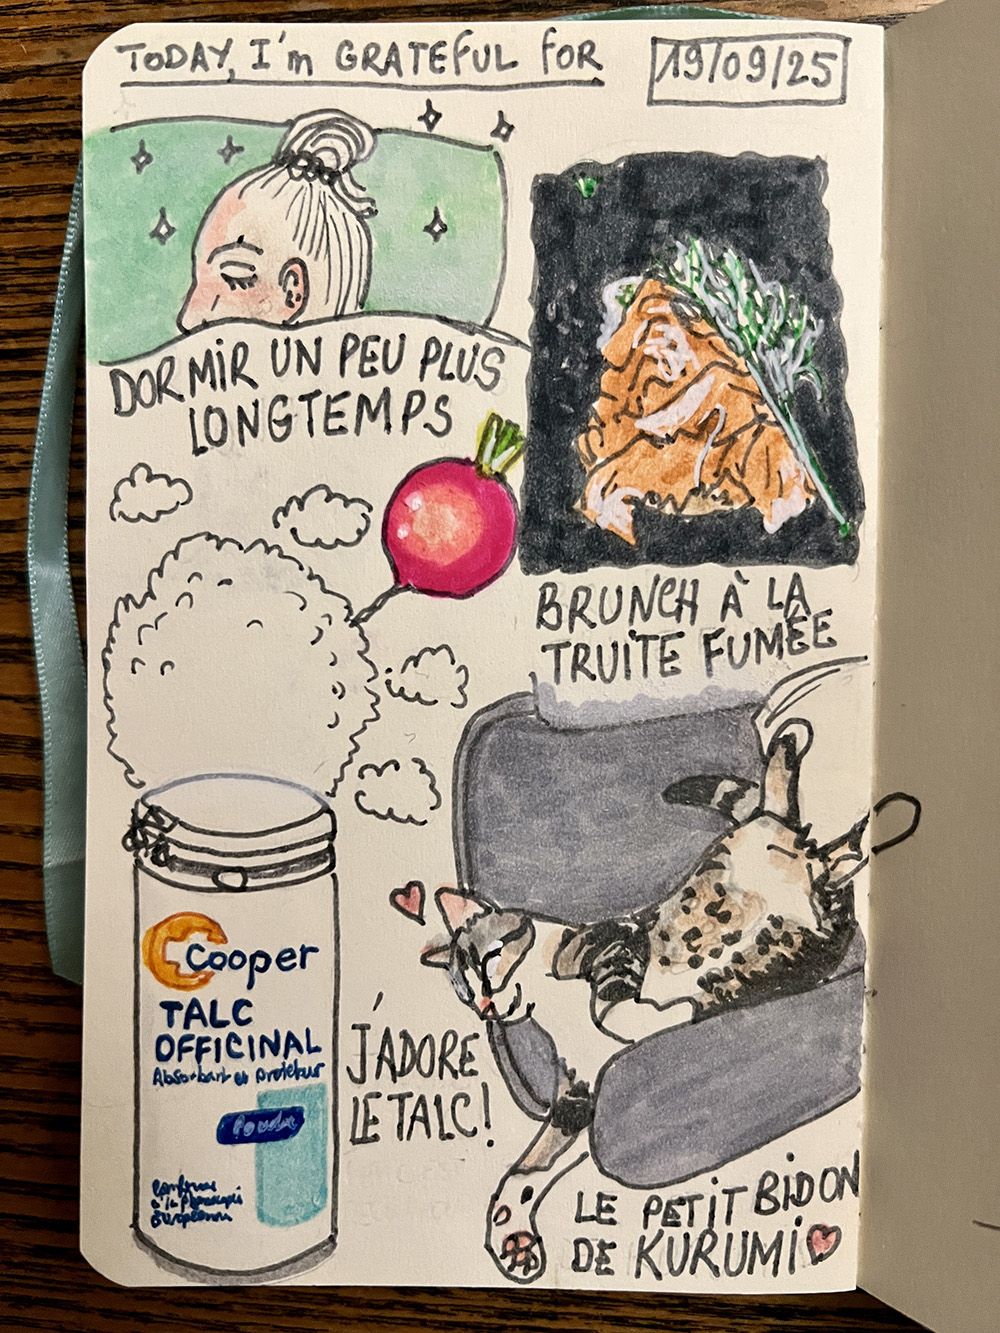 TODAY, I'm GRATEFUL FOR
19/09/25
DORMIR UN PEU PLUS
LONGTEMPS
BRUNCH À LA
TRUITE FUMÊE
Cooper
TALC
OFFICINAL
Absorbant et protecteur
Poudre
J'ADORE
LE TALC!
LE PETIT BIDON
DE KURUMI